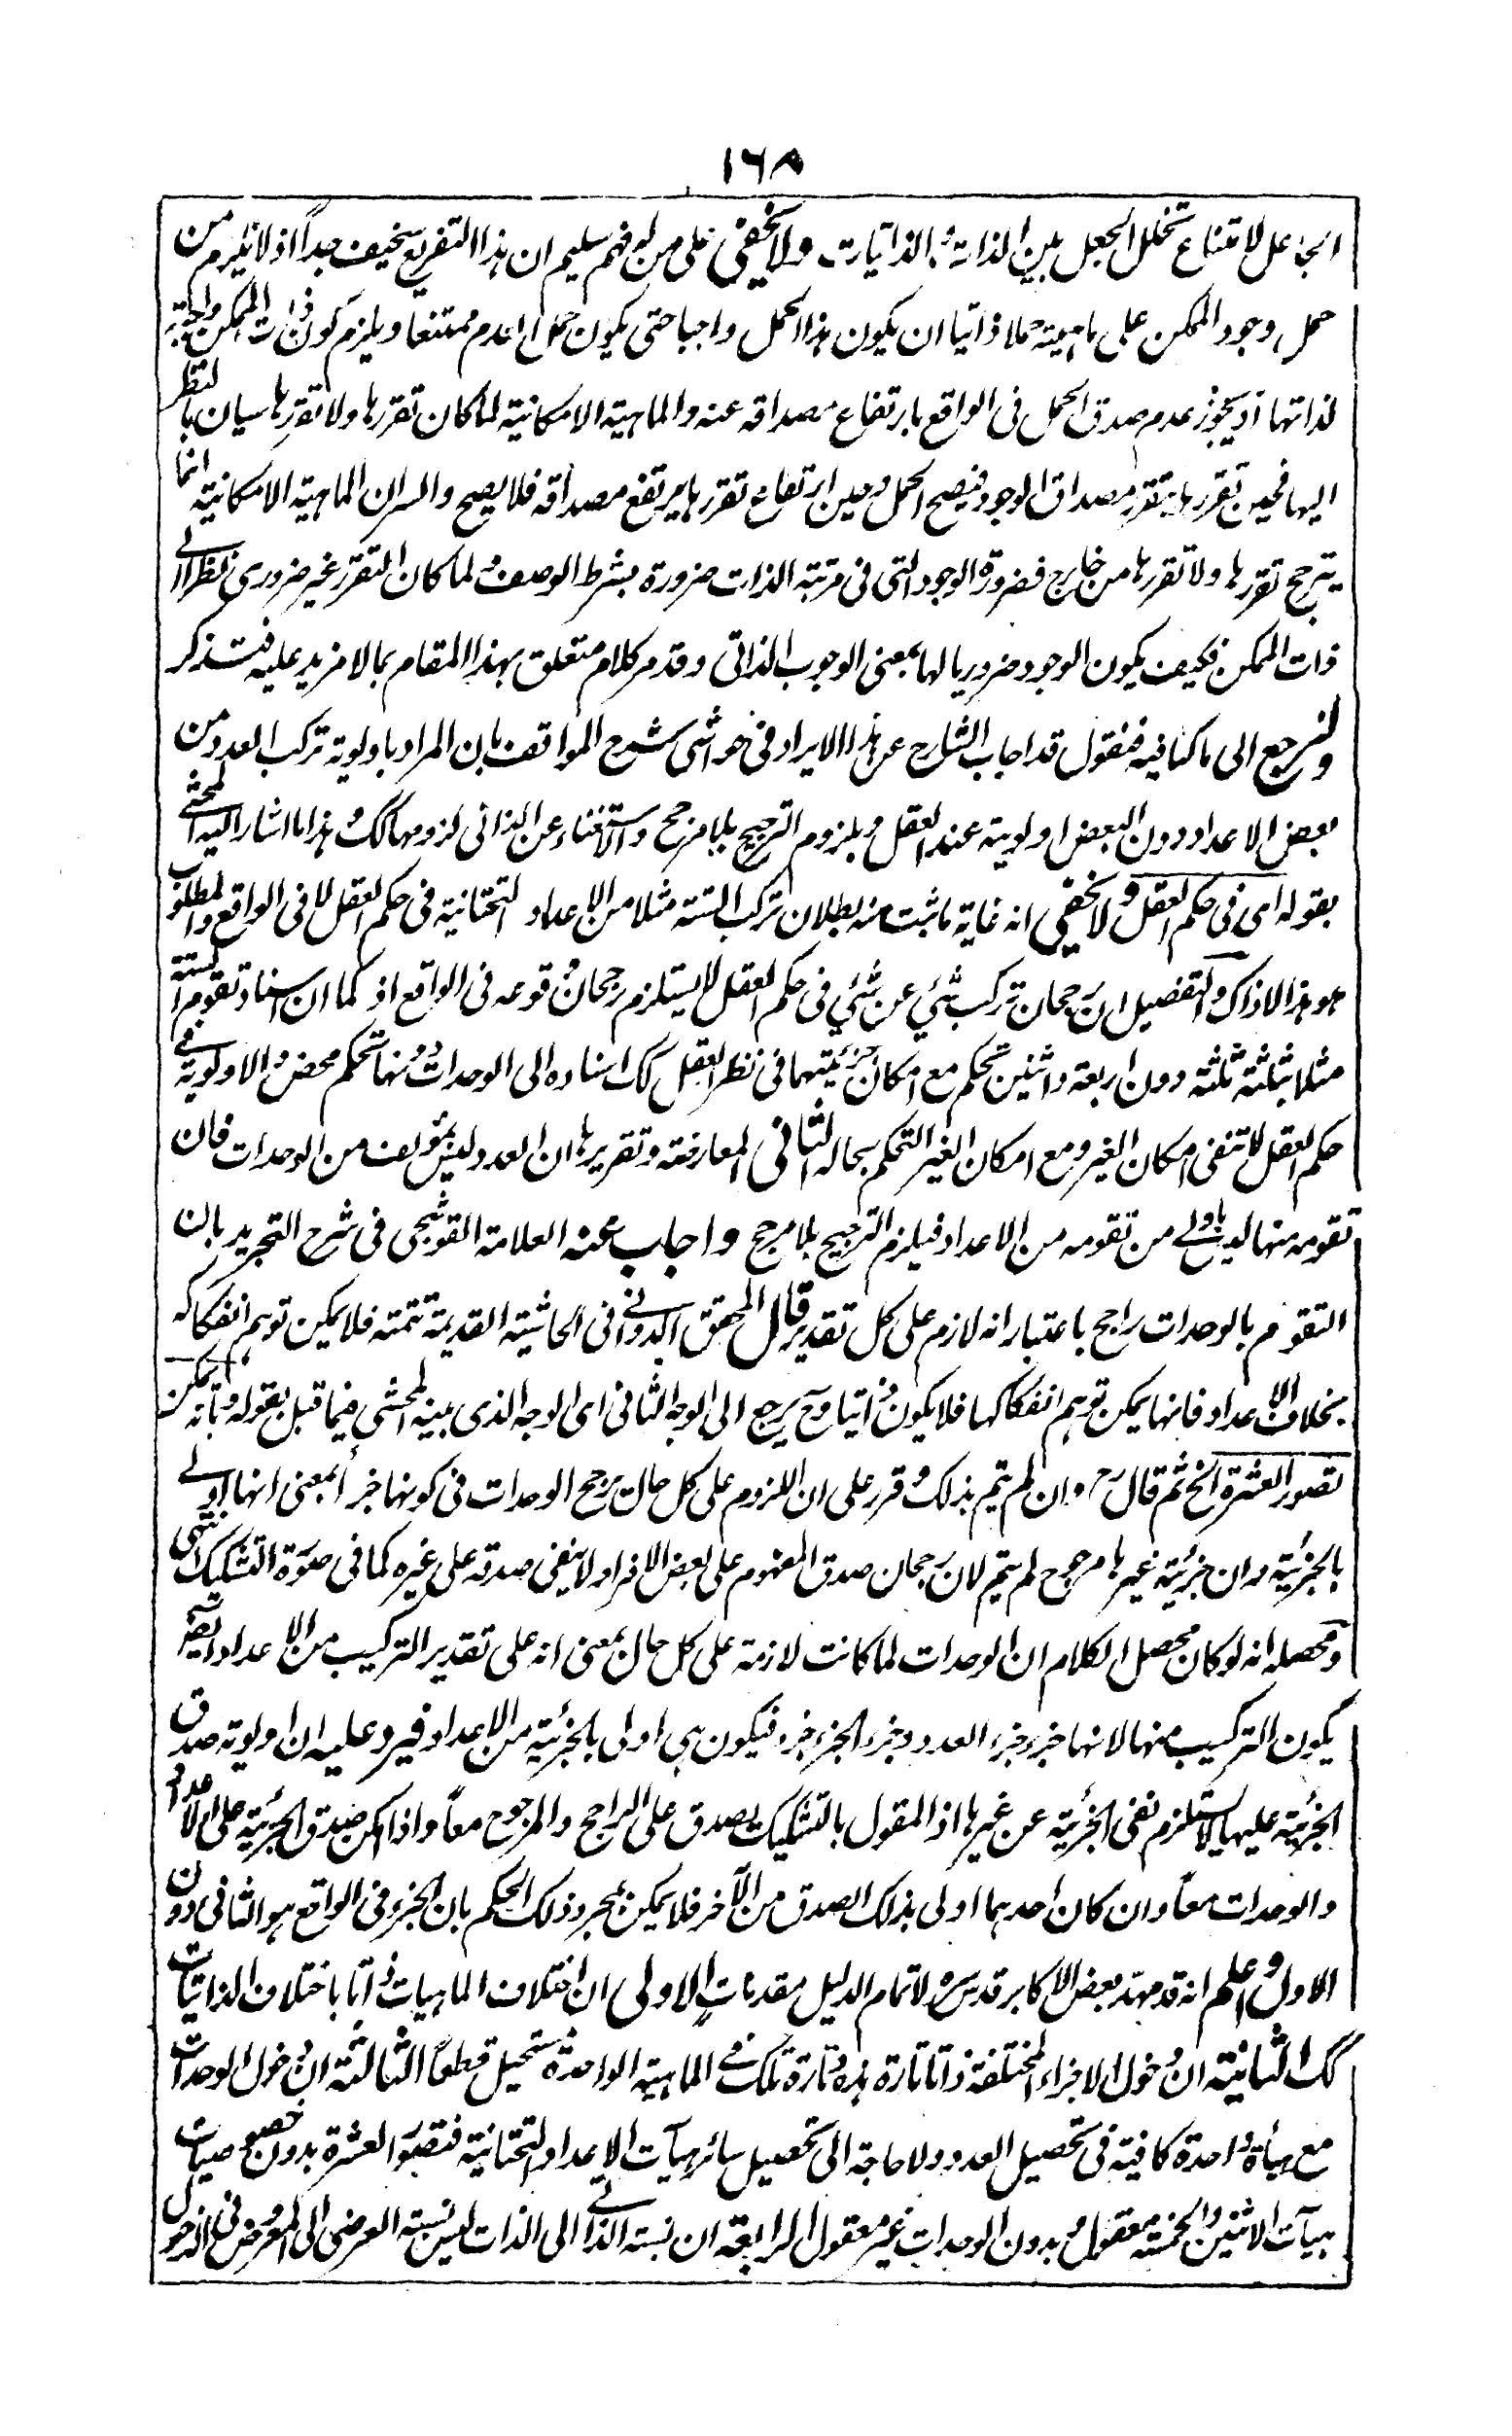 ١٦٨
الجاعل لامتناع تخلل الجعل بين الذات والذاتيات ولا يخفى على من له فهم سليم ان هذا التفريع سخيف جداً اذ لا يلزم من
حمل وجود الممكن على ماهيته حملا ذاتيا ان يكون هذا الحمل واجبا حتى يكون حمل العدم ممتنعا ويلزم كون ذات الممكن واجبة
لذاتها اذ يجوز عدم صدق الحمل فى الواقع بارتفاع مصداقه عنه والماهية الامكانية لما كان تقررها ولا تقررها سيان بالنظر
اليها فحين تقررها يتقرر مصداق الوجود فيصح الحمل وحين ارتفاع تقررها يرتفع مصداقه فلا يصح والسر ان الماهية الامكانية انما
يترجح تقررها ولا تقررها من خارج فضرورة الوجود التى فى مرتبة الذات ضرورة بشرط الوصف ولما كان التقرر غير ضرورى نظرا الى
ذات الممكن فكيف يكون الوجود ضروريا لها بمعنى الوجوب الذاتى وقد مر كلام متعلق بهذا المقام بما لا مزيد عليه فتذكر
ولنرجع الى ما كنا فيه فنقول قد اجاب الشارح عن هذا الايراد فى حواشى شرح المواقف بان المراد باولوية تركب العدد من
بعض الاعداد دون البعض اولويته عند العقل وبلزوم الترجيح بلا مرجح والاستغناء عن الذاتى لزومهما كك وهذا ما اشار اليه المحشى
بقوله اى فى حكم العقل ولا يخفى انه غاية ما ثبت منه بطلان تركب الستة مثلا من الاعداد التحتانية فى حكم العقل لا فى الواقع والمطلوب
هو هذا لا ذاك والتفصيل ان رجحان تركب شئ عن شئ فى حكم العقل لا يستلزم رجحان وقوعه فى الواقع اذ كما ان اسناد تقوم الستة
مثلا بثلثة ثلثة دون اربعة واثنين تحكم مع امكان جزئيتهما فى نظر العقل كك اسناده الى الوحدات دونها تحكم محض والاولوية فى
حكم العقل لا تنفى امكان الغير ومع امكان الغير التحكم بحاله الثانى المعارضة وتقريرها ان العدد ليس بمؤلف من الوحدات فان
تقومه منها ليس باولى من تقومه من الاعداد فيلزم الترجيح بلا مرجح واجاب عنه العلامة القوشجى فى شرح التجريد بان
التقوم بالوحدات راجح باعتبار انه لازم على كل تقدير قال المحقق الدوانى فى الحاشية القديمة تتمته فلا يمكن توهم انفكاكه
بخلاف الاعداد فانها يمكن توهم انفكاكها فلا يكون ذاتيا وح يرجع الى الوجه الثانى اى الوجه الذى بينه المحشى فيما قبل بقوله وبانه يمكن
تصور العشرة الخ ثم قال رح وان لم يتم بذلك وقرر على ان اللزوم على كل حال يرجح الوحدات فى كونها جزأ بمعنى انها اولى
بالجزئية وان جزئية غيرها مرجوح لم يتم لان رجحان صدق المفهوم على بعض الافراد لا ينفى صدقه على غيره كما فى صورة التشكيك انتهى
ومحصله انه لو كان محصل الكلام ان الوحدات لما كانت لازمة على كل حال بمعنى انه على تقدير التركيب من الاعداد ايضا
يكون التركيب منها لانها جزء جزء العدد وجزء الجزء جزء فيكون هى اولى بالجزئية من الاعداد فيرد عليه ان اولوية صدق
الجزئية عليها لا يستلزم نفى الجزئية عن غيرها اذ المقول بالتشكيك يصدق على الراجح والمرجوح معاً واذا امكن صدق الجزئية على الاعداد
والوحدات معاً وان كان احدهما اولى بذلك الصدق من الآخر فلا يمكن بمجرد ذلك الحكم بان الجزء فى الواقع هو الثانى دون
الاول واعلم انه قد مهد بعض الاكابر قدس سره لاتمام الدليل مقدمات الاولى ان اختلاف الماهيات ذاتا باختلاف الذاتيات
كك الثانية ان دخول الاجزاء المختلفة ذاتا تارة هذه وتارة تلك فى الماهية الواحدة مستحيل قطعاً الثالثة ان دخول الوحدات
مع هيأة واحدة كافية فى تحصيل العدد ولا حاجة الى تحصيل سائر هيآت الاعداد التحتانية فتصور العشرة بدون خصوصيات
هيآت الاثنين والخمسة معقول وبدون الوحدات غير معقول الرابعة ان نسبة الذاتى الى الذات ليس نسبة العرضى الى المعروض فى الدخول